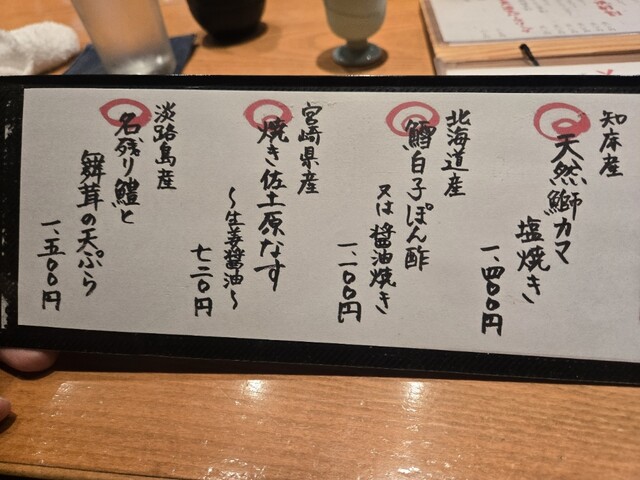 知床産
天然鰤カマ
塩焼き
一、四〇〇円
北海道産
鱈白子ぽん酢
又は醤油焼き
一、一〇〇円
宮崎県産
焼き佐土原なす
〜生姜醤油〜
七二〇円
淡路島産
名残り鱧と
舞茸の天ぷら
一、五〇〇円